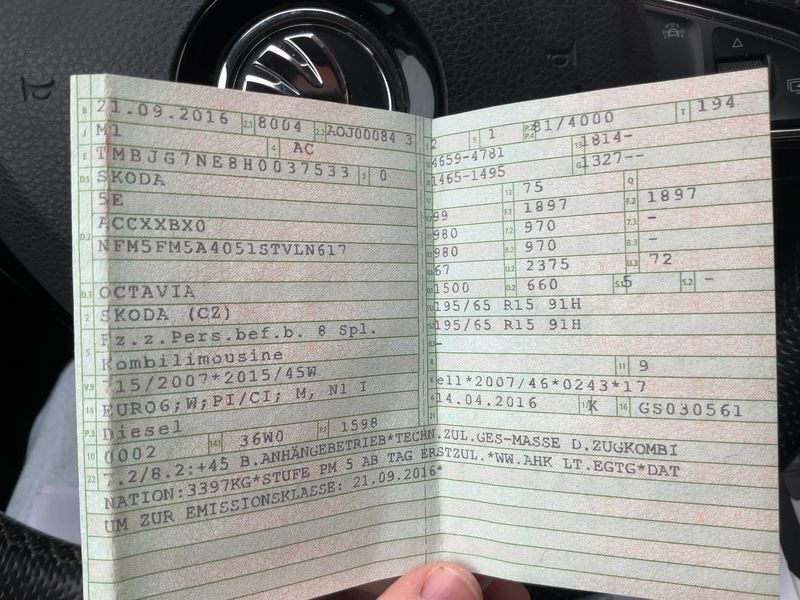 B 21.09.2016 2.1 8004 2.2 AOJ00084 3
J M1 4 AC
E TMBJG7NE8H0037533 3 0
D.1 SKODA
5E
D.2 ACCXXBX0
NFM5FM5A4051STVLN617
D.3 OCTAVIA
2 SKODA (CZ)
5 Fz.z.Pers.bef.b. 8 Spl.
Kombilimousine
V.9 715/2007*2015/45W
14 EURO6;W;PI/CI; M, N1 I
P.3 Diesel
10 0002 14.1 36W0 P.1 1598
22 7.2/8.2:+45 B.ANHÄNGEBETRIEB*TECHN.ZUL.GES-MASSE D.ZUGKOMBI
NATION:3397KG*STUFE PM 5 AB TAG ERSTZUL.*WW.AHK LT.EGTG*DAT
UM ZUR EMISSIONSKLASSE: 21.09.2016*
2 9 1 P.2 P.4 81/4000 T 194
4659-4781 1814-
1465-1495 G 1327--
13 75 Q
99 F.1 1897 F.2 1897
980 7.2 970 7.3 -
980 8.2 970 8.3 -
67 U.2 2375 U.3 72
1500 O.2 660 S.1 5 S.2 -
195/65 R15 91H
195/65 R15 91H
-
11 9
K e11*2007/46*0243*17
6 14.04.2016 17 K 16 GS030561
21